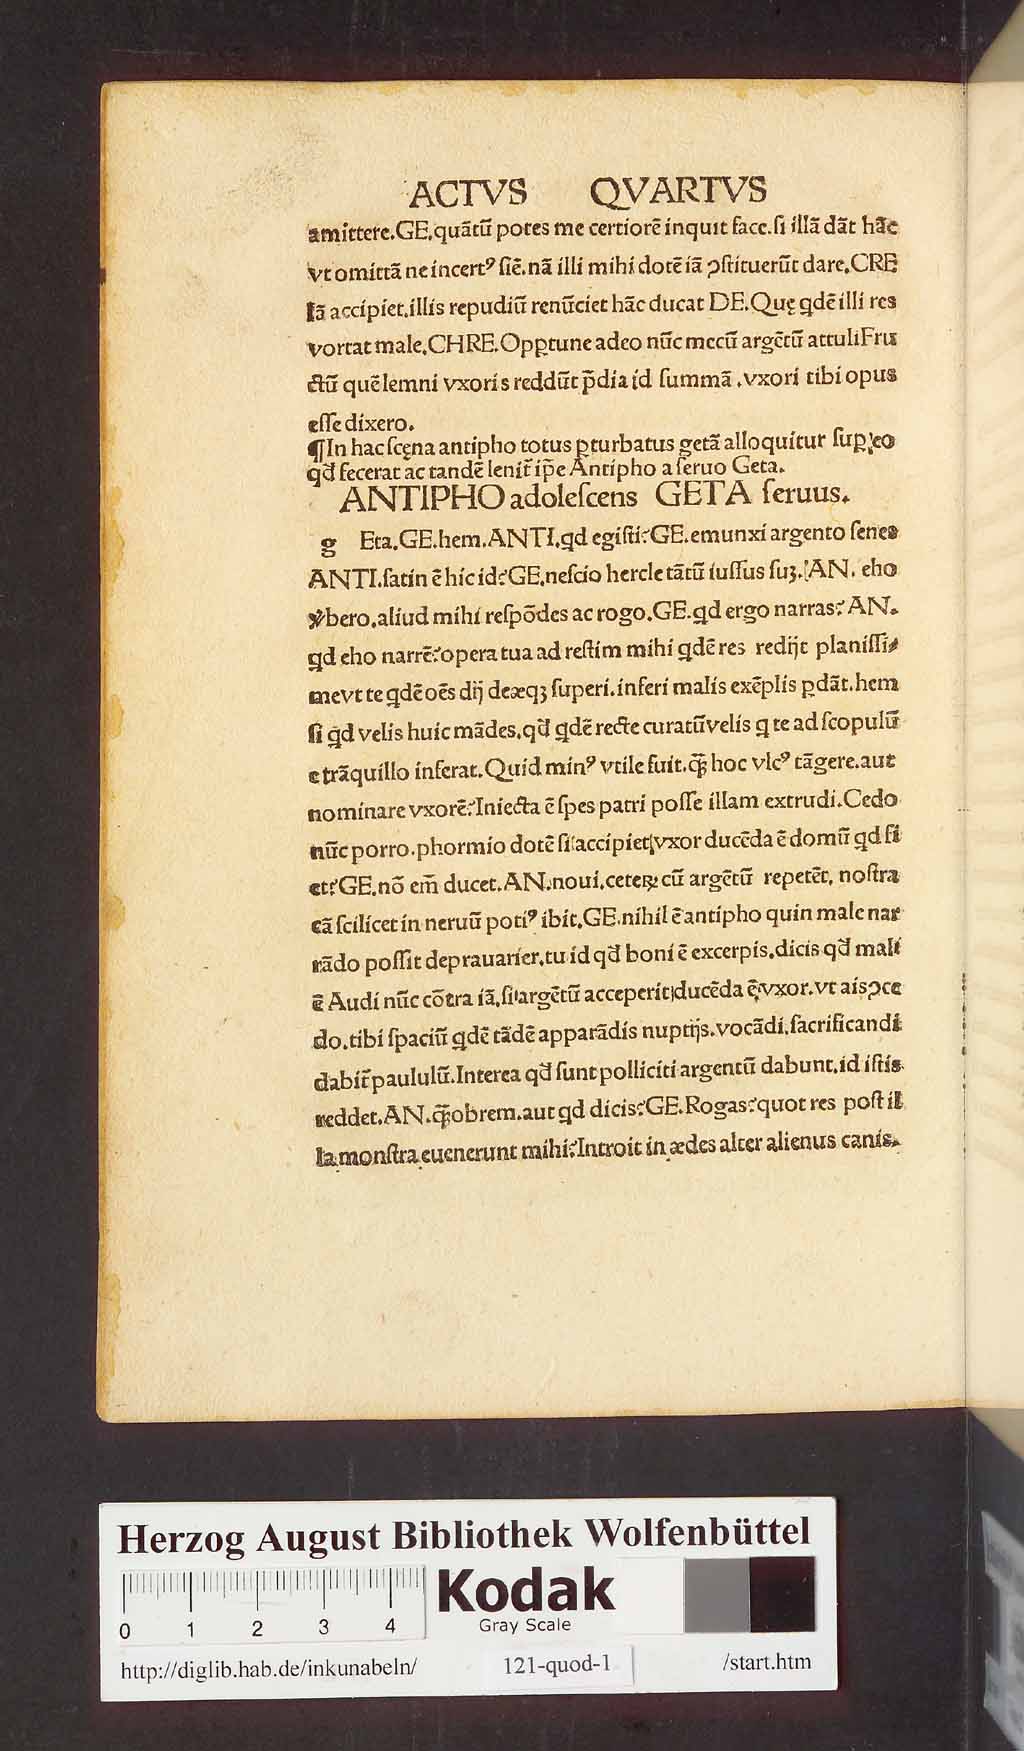 ACTVS QVARTVS
amittere.GE.quãtũ potes me certiorẽ inquit face.ſi illã dãt hãc
vt omittã ne incertꝰ ſiẽ.nã illi mihi dotẽ iã ↄſtituerũt dare.CRE
Iã accipiet.illis repudiũ renũciet hãc ducat DE.Quę qdẽ illi res
vortat male.CHRE.Opꝑtune adeo nũc mecũ argẽtũ attuli Fru
ctũ quẽ lemni vxoris reddũt p̃dia id ſummã .vxori tibi opus
eſſe dixero.
¶In hac ſcęna antipho totus ꝑturbatus getã alloquitur ſuꝑ eo
qđ fecerat ac tandẽ lenit̃ ip̃e Antipho a ſeruo Geta.
ANTIPHO adoleſcens GETA ſeruus.
g Eta.GE.hem.ANTI.qd egiſti?GE.emunxi argento ſenes
ANTI.ſatin ẽ hic id?GE.neſcio hercle tãtũ iuſſus ſuꝫ.AN. eho
ꝟbero.aliud mihi reſpõdes ac rogo.GE.qd ergo narras?AN.
qd eho narrẽ?opera tua ad reſtim mihi qdẽ res redijt planiſſi
mevt te qdẽ oẽs dij deæqꝫ ſuperi.inferi malis exẽplis ꝑdãt.hem
ſi qd velis huic mãdes.qđ qdẽ recte curatũ velis q te ad ſcopulũ
e trãquillo inferat.Quid minꝰ vtile fuit.q̃ꝫ hoc vlcꝰ tãgere.aut
nominare vxorẽ?Iniecta ẽ ſpes patri poſſe illam extrudi.Cedo
nũc porro.phormio dotẽ ſi accipiet vxor ducẽda ẽ domũ qd fi
et?GE.nõ em̃ ducet.AN.noui.ceteꝝ cũ argẽtũ repetẽt, noſtra
cã ſcilicet in neruũ potiꝰ ibit.GE.nihil ẽ antipho quin male nar
rãdo poſſit deprauarier.tu id qđ boni ẽ excerpis.dicis qđ mali
ẽ Audi nũc cõtra iã.ſi argẽtũ acceperit ducẽda ẽ vxor.vt ais ↄce
do.tibi ſpaciũ qdẽ tãdẽ apparãdis nuptijs.vocãdi.ſacrificandi
dabit̃ paululũ.Interea qđ ſunt polliciti argentũ dabunt.id iſtis
reddet.AN.q̃ꝫobrem.aut qd dicis?GE.Rogas?quot res poſt il
la monſtra euenerunt mihi?Introit in ædes alter alienus canis.
Herzog August Bibliothek Wolfenbüttel
0 1 2 3 4
Kodak
Gray Scale
http://diglib.hab.de/inkunabeln/ 121-quod-1 /start.htm